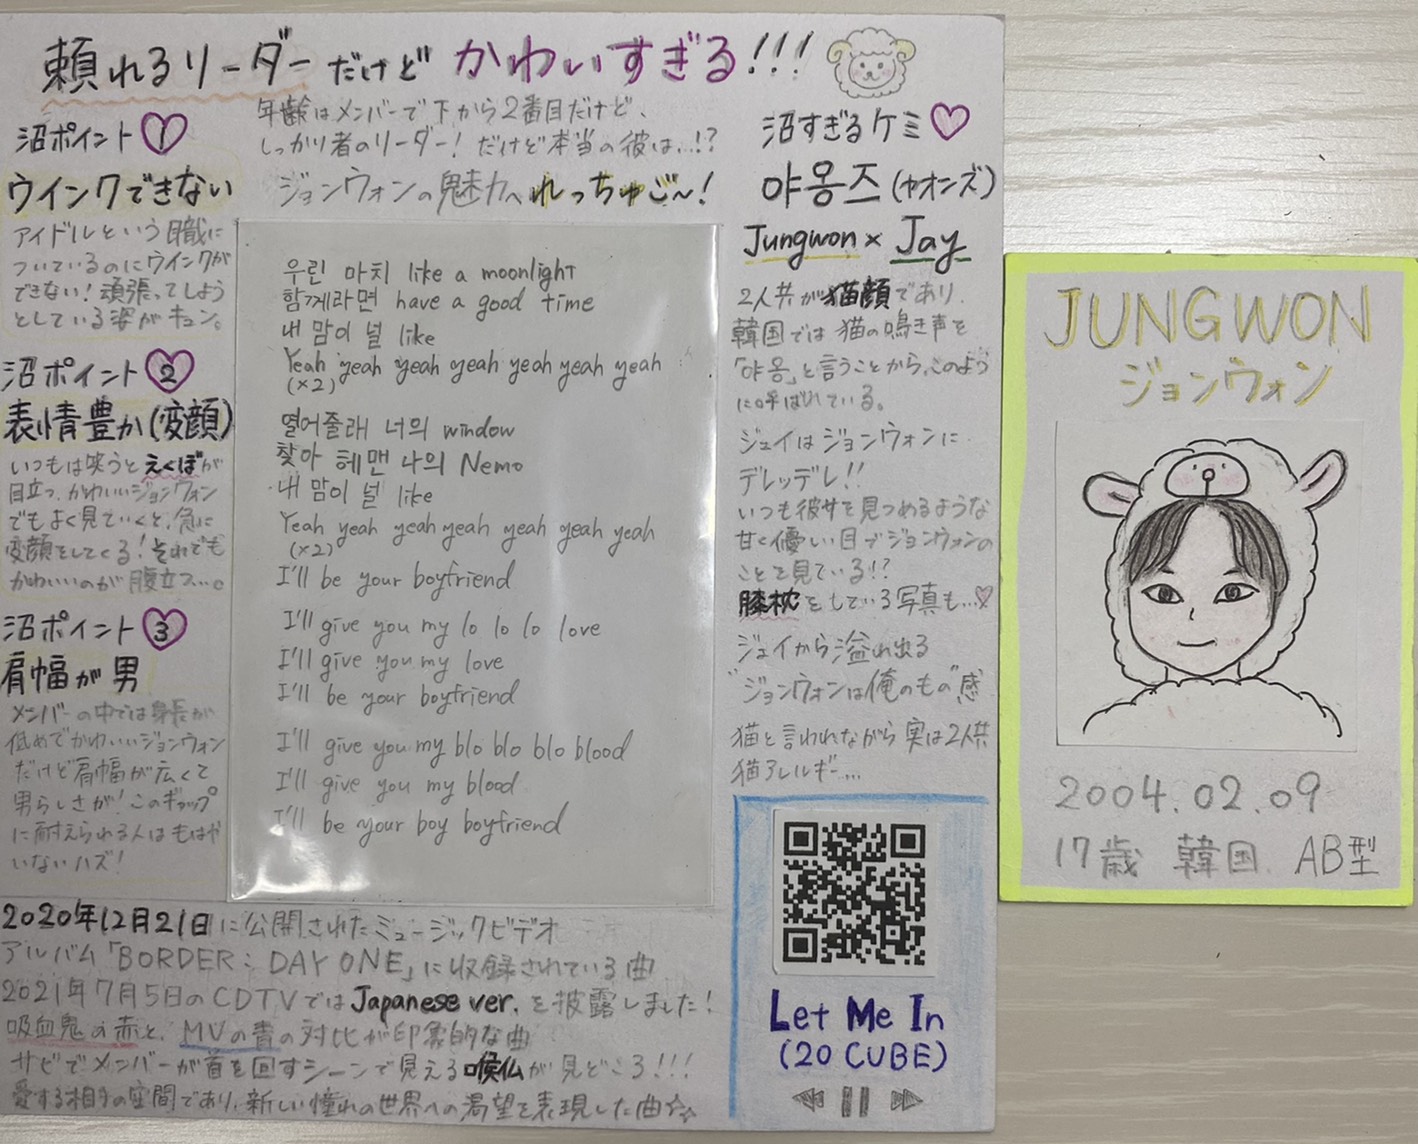 頼れるリーダーだけど かわいすぎる!!!
年齢はメンバーで下から2番目だけど、
しっかり者のリーダー! だけど本当の彼は…!?
ジョンウォンの魅力へれっちゅご〜!
沼ポイント 1
ウインクできない
アイドルという職に
ついているのにウインクが
できない!頑張ってしよう
としている姿がキュン。
沼ポイント 2
表情豊か(変顔)
いつもは笑うとえくぼが
目立つ、かわいいジョンウォン
でもよく見ていくと、急に
変顔をしてくる!それでも
かわいいのが腹立つ…。
沼ポイント 3
肩幅が男
メンバーの中では身長が
低めでかわいいジョンウォン
だけど肩幅が広くて
男らしさが!このギャップ
に耐えられる人はもはや
いないハズ!
우린 마치 like a moonlight
함께라면 have a good time
내 맘이 널 like
Yeah yeah yeah yeah yeah yeah yeah
(×2)
열어줄래 너의 window
찾아 헤맨 나의 Nemo
내 맘이 널 like
Yeah yeah yeah yeah yeah yeah yeah
(×2)
I'll be your boyfriend
I'll give you my lo lo lo love
I'll give you my love
I'll be your boyfriend
I'll give you my blo blo blo blood
I'll give you my blood
I'll be your boy boyfriend
沼すぎるケミ
야옹즈(ヤオンズ)
Jungwon × Jay
2人共が猫顔であり、
韓国では猫の鳴き声を
「야옹」と言うことから、このよう
に呼ばれている。
ジェイはジョンウォンに
デレッデレ!!
いつも彼女を見つめるような
甘く優しい目でジョンウォンの
ことを見ている!?
膝枕をしている写真も…
ジェイから溢れ出る
"ジョンウォンは俺のもの"感
猫と言われながら実は2人共
猫アレルギー…
Let Me In
(20 CUBE)
2020年12月21日に公開されたミュージックビデオ
アルバム「BORDER : DAY ONE」に収録されている曲
2021年7月5日のCDTVではJapanese ver.を披露しました!
吸血鬼の赤と、MVの青の対比が印象的な曲
サビでメンバーが首を回すシーンで見える喉仏が見どころ!!!
愛する相手の空間であり、新しい憧れの世界への渇望を表現した曲☆
JUNGWON
ジョンウォン
2004.02.09
17歳 韓国 AB型